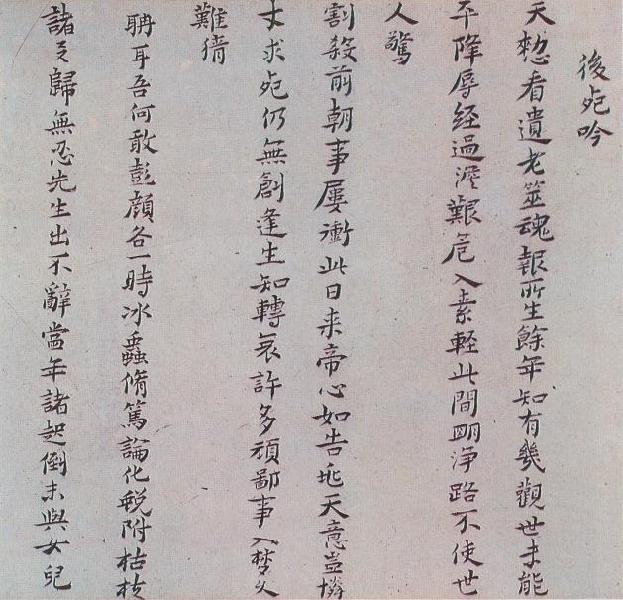 後死吟
天愁看遺老筮魂報所生餘年知有幾觀世未能
平降辱経過澁艱危入素輕此間明淨路不使世
人驚
割殺前朝事屡衝此日来帝心如告兆天意豈憐
才求死仍無創逢生知轉哀許多頑鄙事入梦久
難猜
聃耳吾何敢彭顔各一時冰蟲脩篤論化蛻附枯枝
諸乏歸無忍先生出不辭當年諸起倒未與女兒